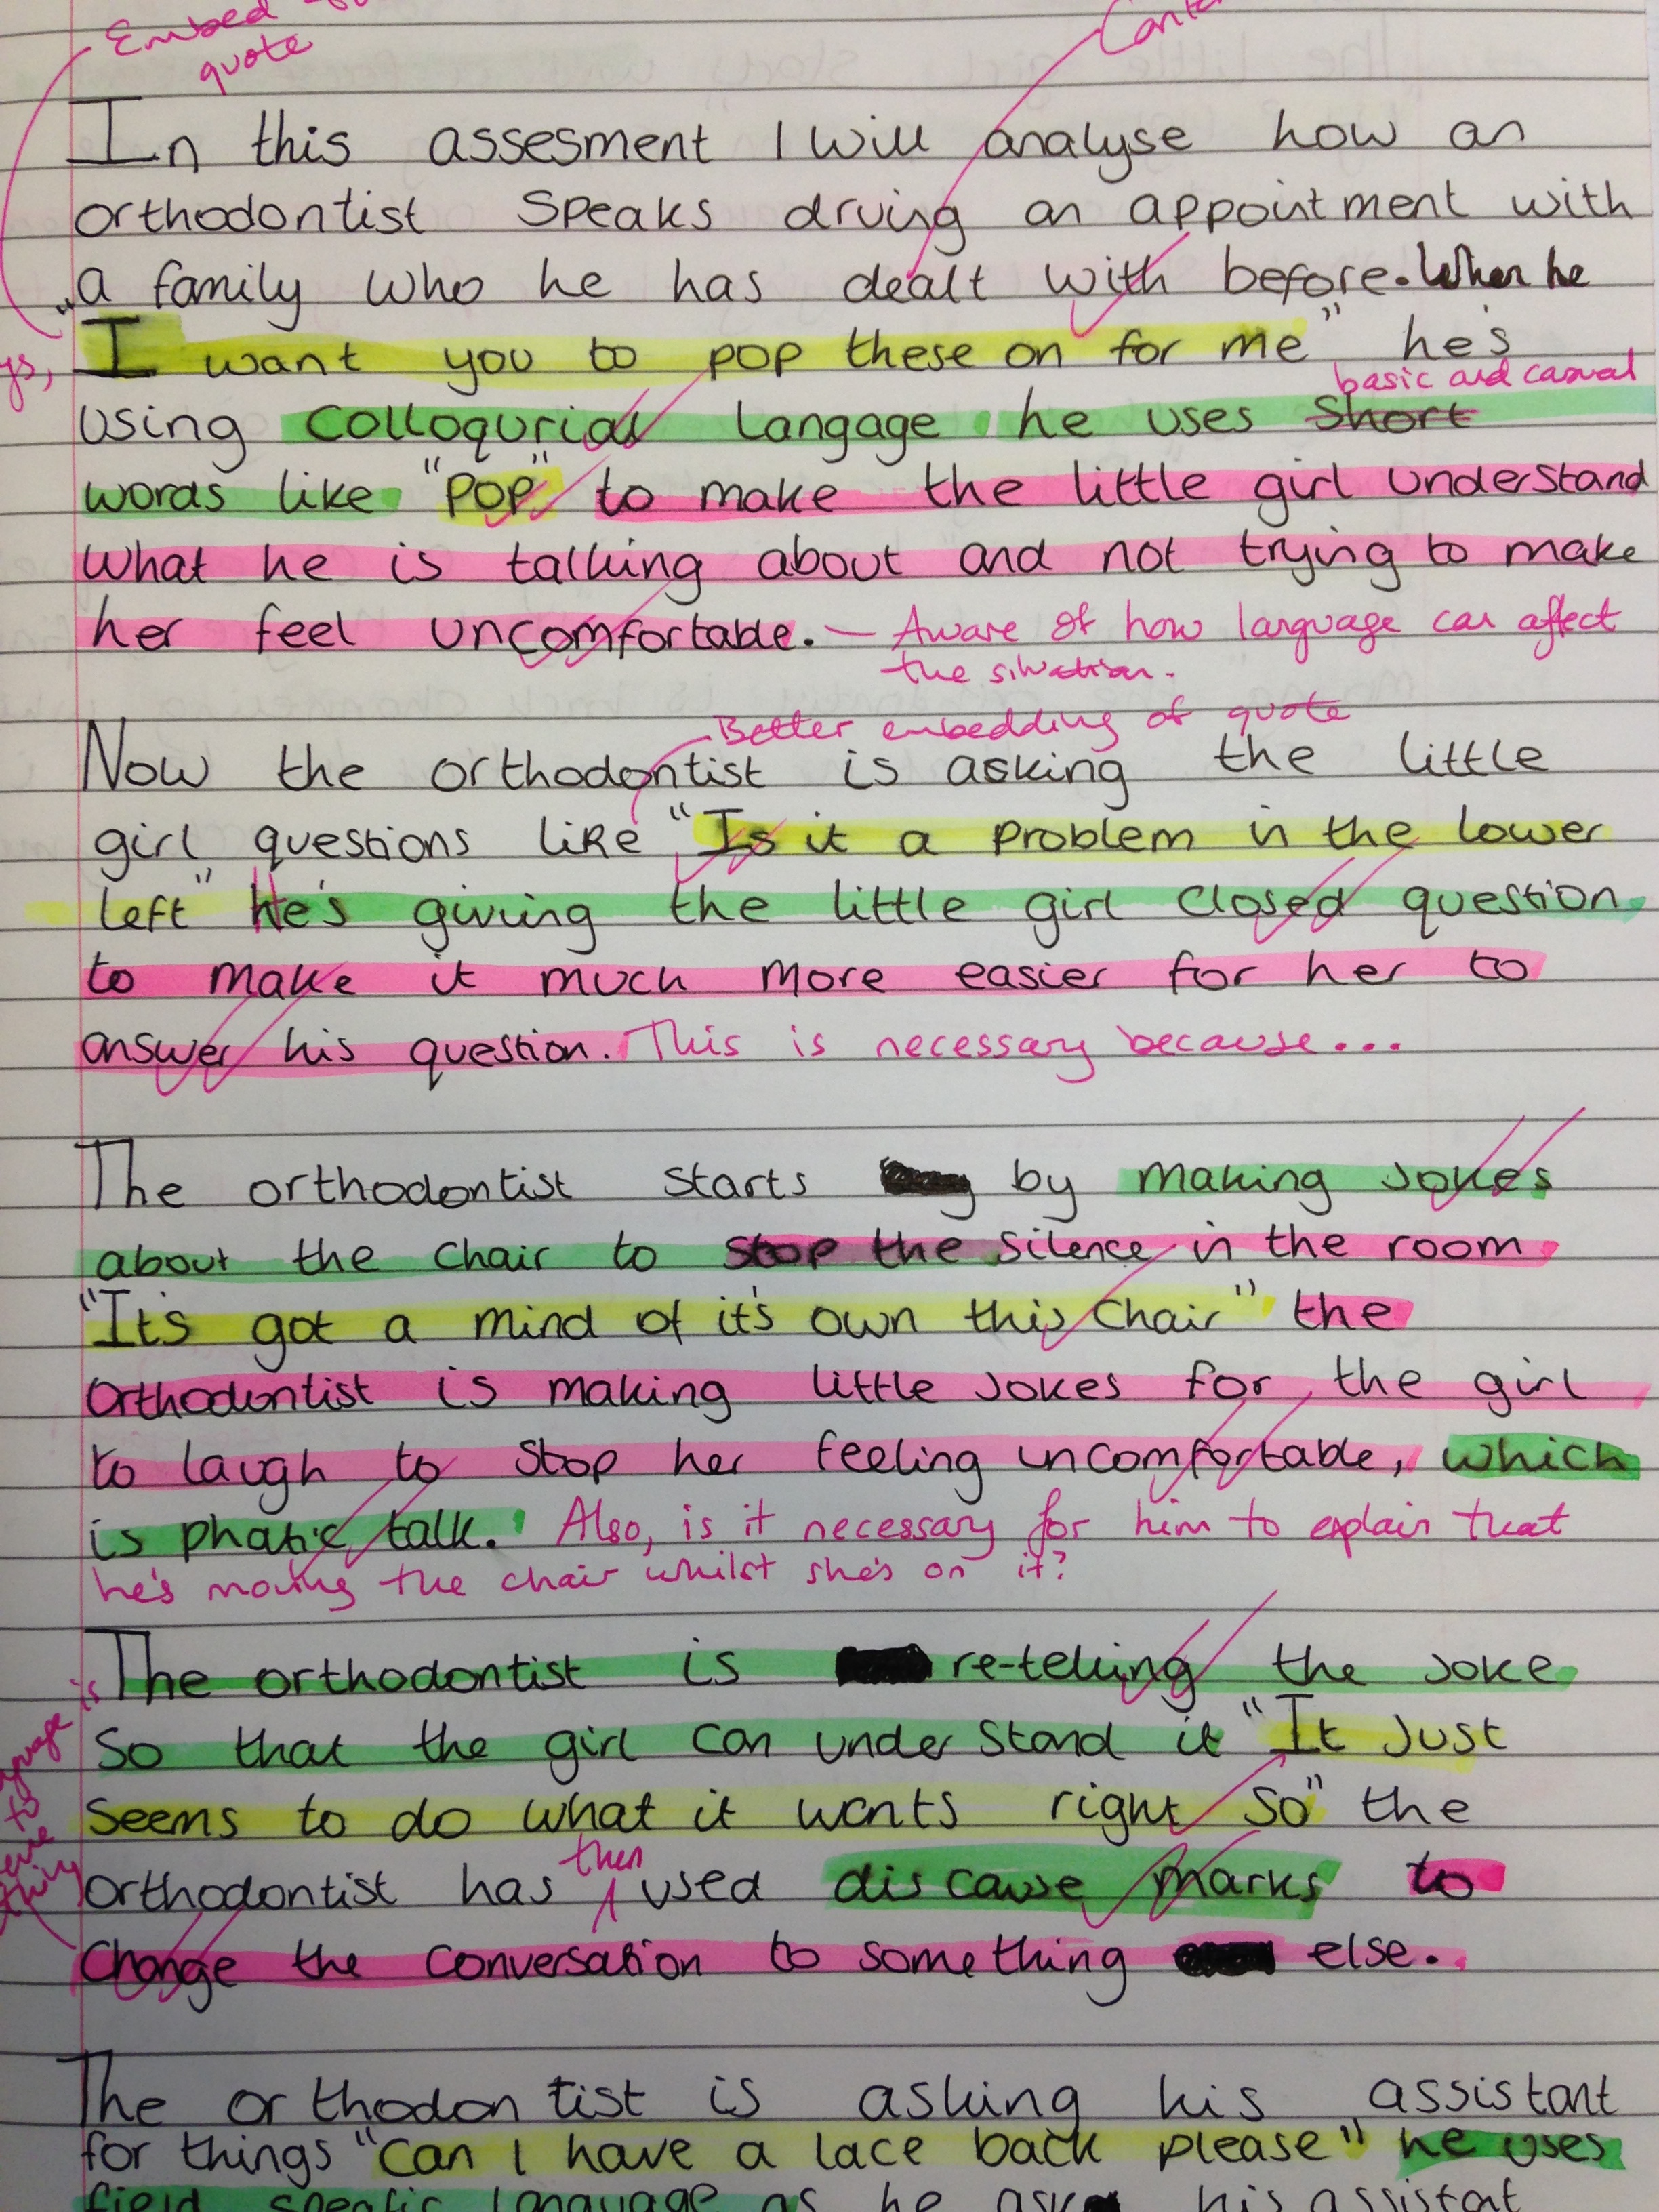 Embed
quote
In this assesment I will analyse how an
orthodontist speaks druing an appointment with
a family who he has dealt with before. When he
"I want you to pop these on for me" he's
basic and casual
using colloqurial langage he uses short
words like "pop" to make the little girl understand
what he is talking about and not trying to make
her feel uncomfortable. — Aware of how language can affect
the situation.
Better embedding of quote
Now the orthodontist is asking the little
girl questions like "Is it a problem in the lower
left" He's giving the little girl closed question
to make it much more easier for her to
answer his question. This is necessary because...
The orthodontist starts by making jokes
about the chair to stop the silence in the room
"It's got a mind of it's own this chair" the
orthodontist is making little jokes for the girl
to laugh to stop her feeling uncomfortable, which
is phatic talk. Also, is it necessary for him to explain that
he's moving the chair whilst she's on it?
The orthodontist is re-telling the joke
is
So that the girl can understand it "It just
seems to do what it wants right so" the
to
then
orthodontist has used discawse marks to
change the conversation to something else.
The orthodontist is asking his assistant
for things "can I have a lace back please" he uses
field specific language as he his assistant